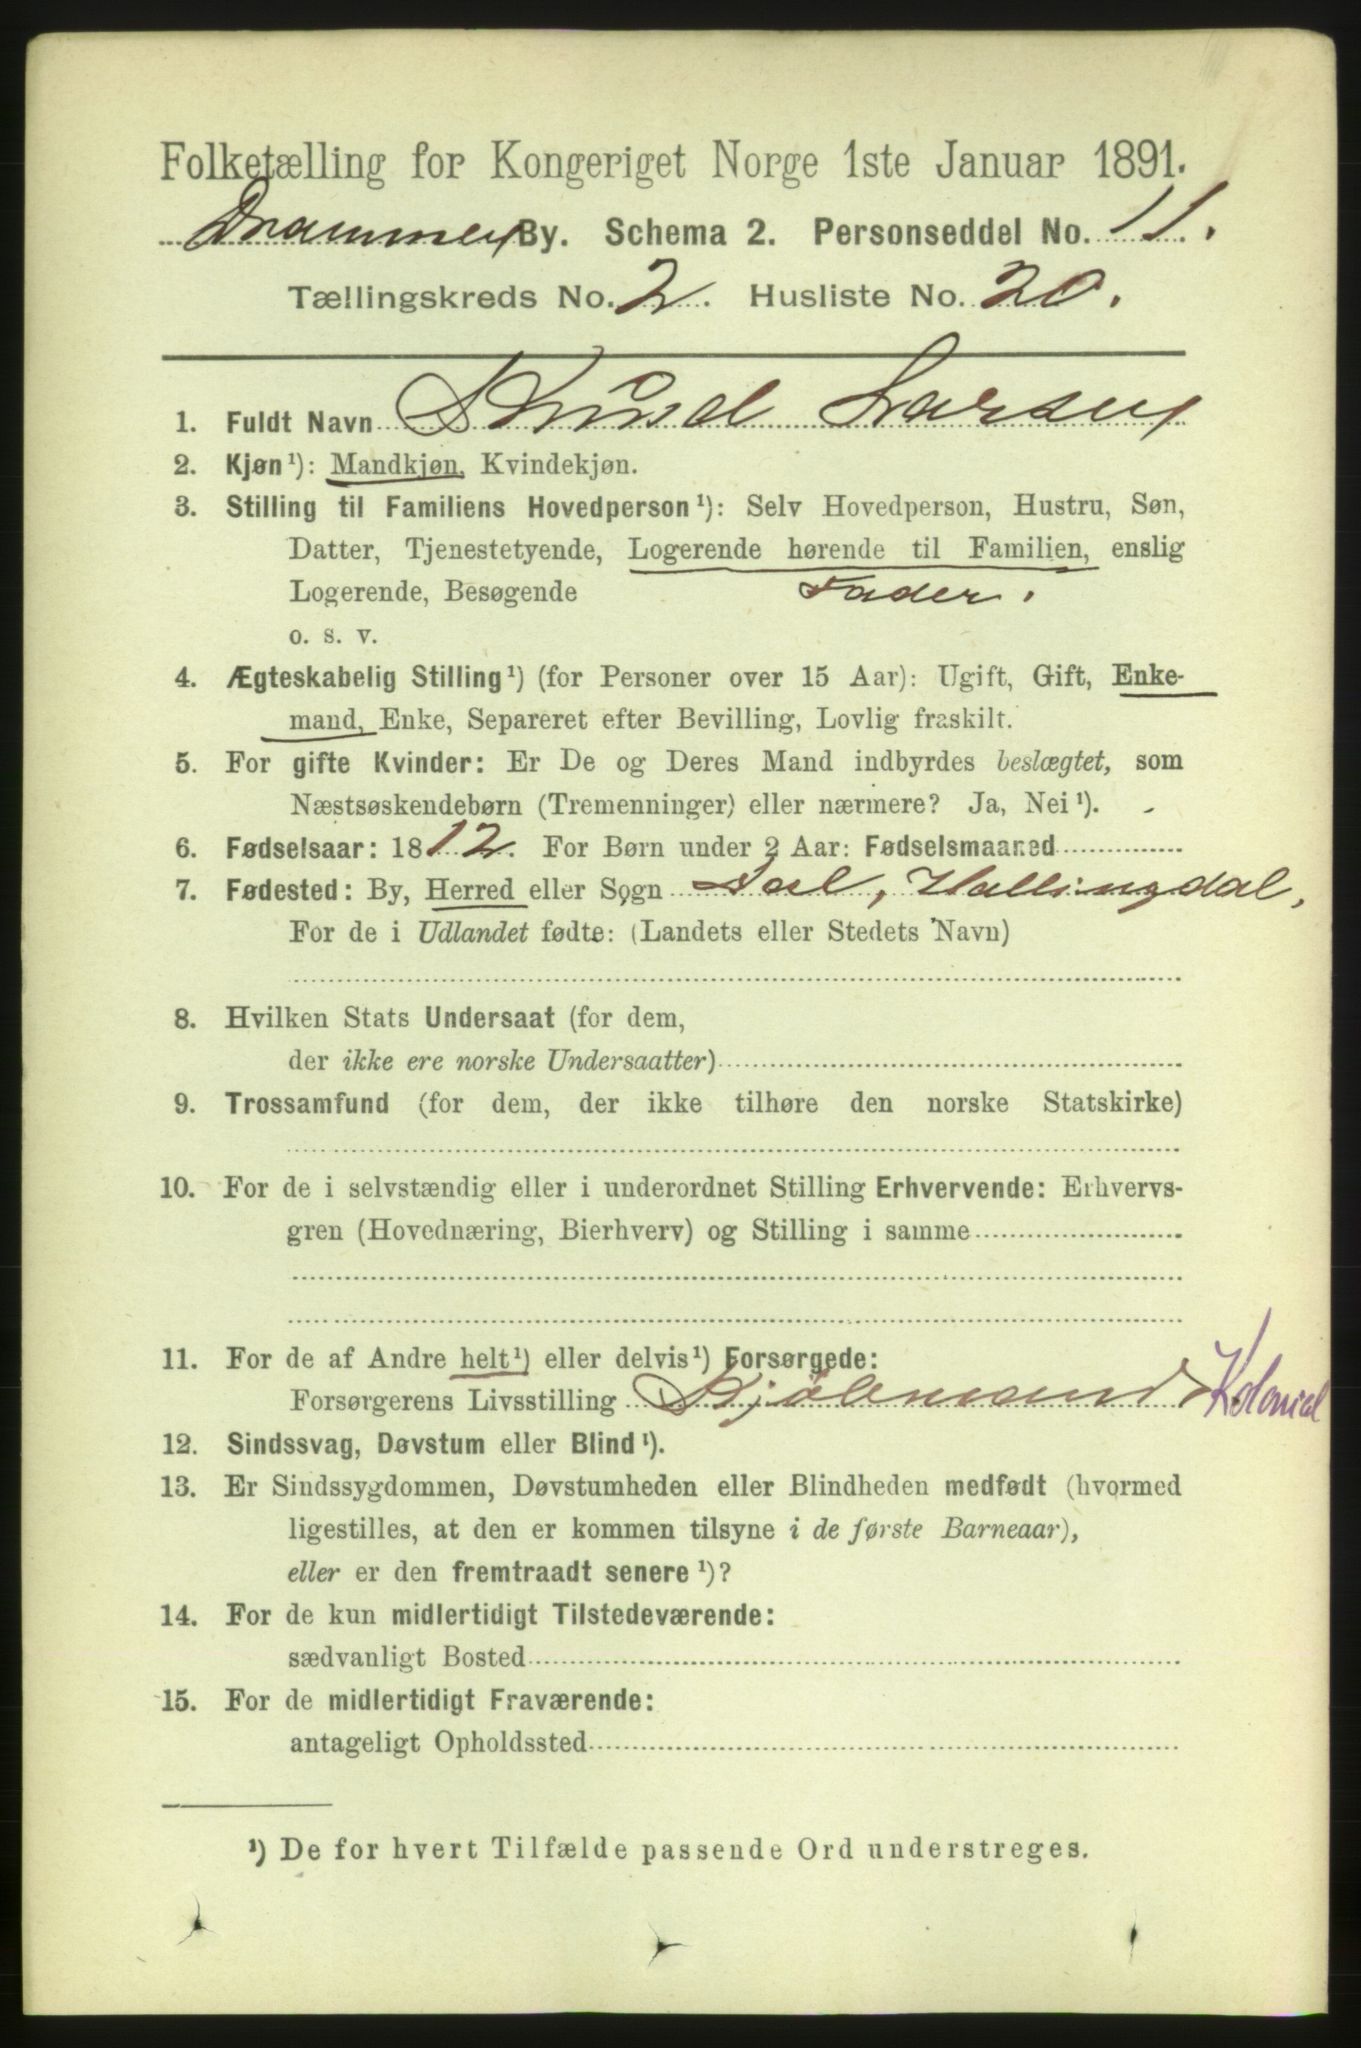 Folketælling for Kongeriget Norge 1ste Januar 1891.
Drammen By. Schema 2. Personseddel No. 11.
Tællingskreds No. 2. Husliste No. 20.
1. Fuldt Navn Knud Larsen
2. Kjøn¹): Mandkjøn, Kvindekjøn.
3. Stilling til Familiens Hovedperson¹): Selv Hovedperson, Hustru, Søn,
Datter, Tjenestetyende, Logerende hørende til Familien, enslig
Logerende, Besøgende Fader.
o. s. v.
4. Ægteskabelig Stilling¹) (for Personer over 15 Aar): Ugift, Gift, Enke-
mand, Enke, Separeret efter Bevilling, Lovlig fraskilt.
5. For gifte Kvinder: Er De og Deres Mand indbyrdes beslægtet, som
Næstsøskendebørn (Tremenninger) eller nærmere? Ja, Nei¹). -
6. Fødselsaar: 1812. For Børn under 2 Aar: Fødselsmaaned
7. Fødested: By, Herred eller Sogn Aal, Hallingdal,
For de i Udlandet fødte: (Landets eller Stedets Navn)
8. Hvilken Stats Undersaat (for dem,
der ikke ere norske Undersaatter)
9. Trossamfund (for dem, der ikke tilhøre den norske Statskirke)
10. For de i selvstændig eller i underordnet Stilling Erhvervende: Erhvervs-
gren (Hovednæring, Bierhverv) og Stilling i samme
11. For de af Andre helt¹) eller delvis¹) Forsørgede:
Forsørgerens Livsstilling Kjøbmand Kolonial
12. Sindssvag, Døvstum eller Blind¹).
13. Er Sindssygdommen, Døvstumheden eller Blindheden medfødt (hvormed
ligestilles, at den er kommen tilsyne i de første Barneaar),
eller er den fremtraadt senere¹)?
14. For de kun midlertidigt Tilstedeværende:
sædvanligt Bosted
15. For de midlertidigt Fraværende:
antageligt Opholdssted
¹) De for hvert Tilfælde passende Ord understreges.